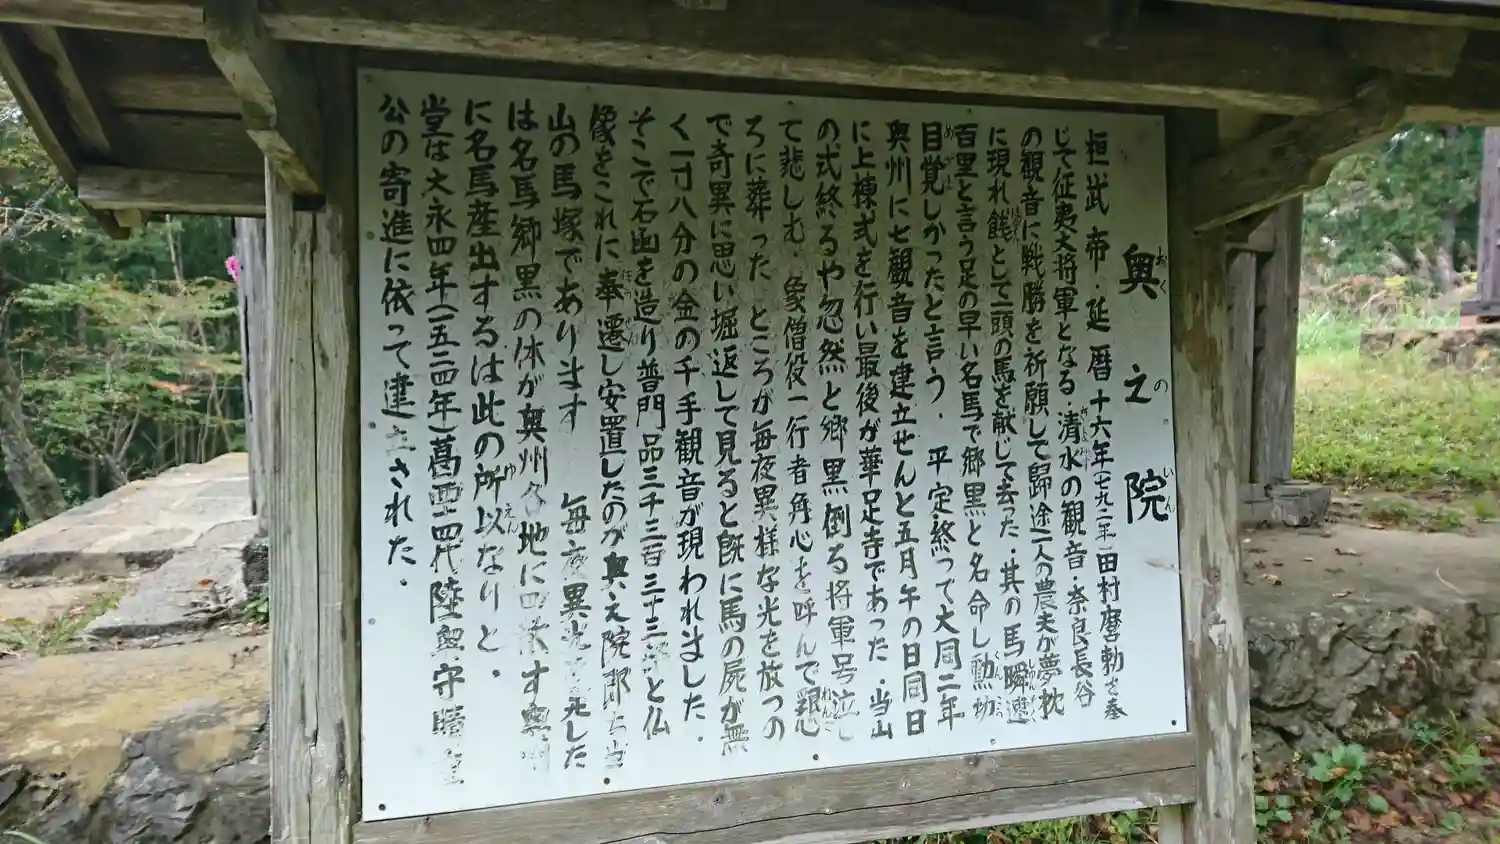 奥之院
おくのいん
桓武帝・延暦十六年(七九二年)田村麿勅を奉
じて征夷大将軍となる・清水の観音・奈良長谷
の観音に戦勝を祈願して歸途一人の農夫が夢枕
に現れ餞として一頭の馬を献じて去った・其の馬瞬速
百里と言う足の早い名馬で郷黒と名命し勳功
目覚しかったと言う・平定終って大同二年
奥州に七観音を建立せんと五月午の日同日
に上棟式を行い最後が華足寺であった・当山
の式終るや忽然と郷黒倒る将軍号泣し
て悲しむ・象僧役一行者角心を呼んで懇
ろに葬った ところが毎夜異様な光を放つの
で奇異に思い堀返して見ると既に馬の屍が無
く一寸八分の金の千手観音が現われました・
そこで石山を造り普門品三千三百三十三部と仏
像をこれに奉遷し安置したのが奥之院郎ち当
山の馬塚であります 毎夜異光を発した
は名馬郷黒の体が奥州各地に四散す奥州
に名馬産出するは此の所以なりと・
堂は大永四年(一五二四年)葛西十四代陸奥守晴重
公の寄進に依って建立された・